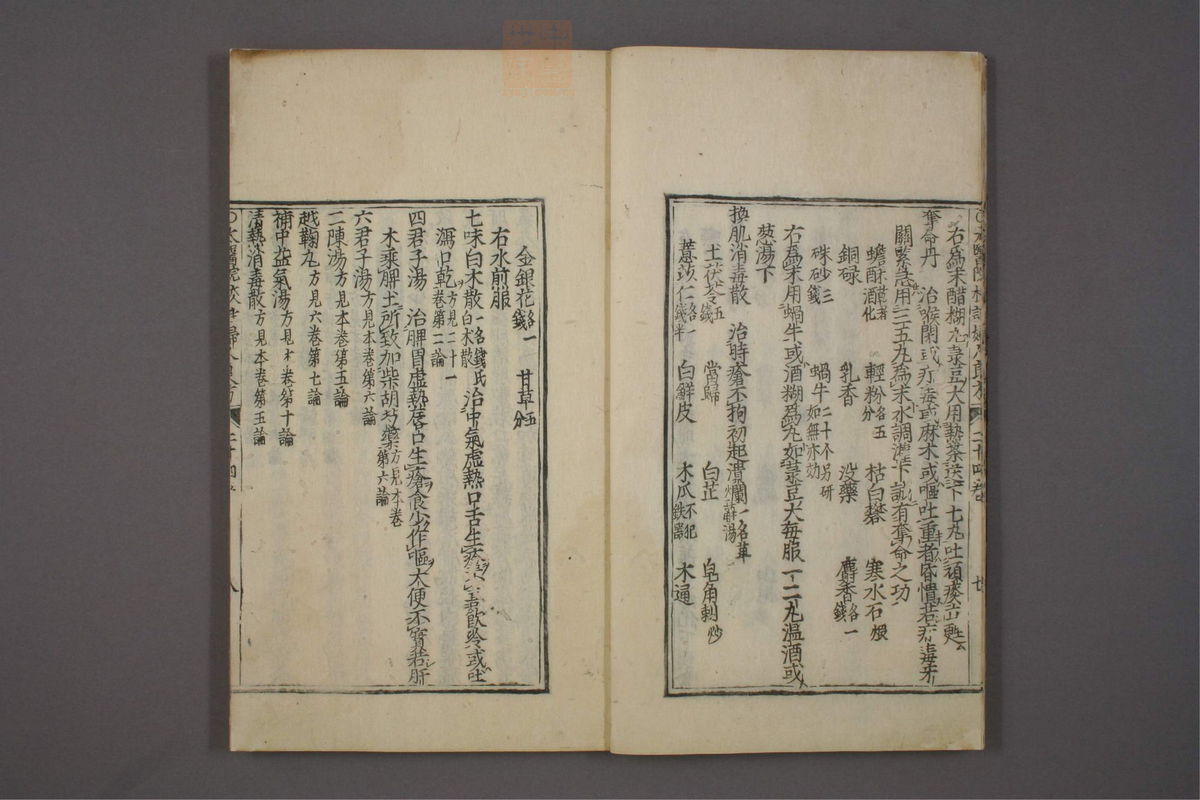 右爲末醋糊丸菉豆大用熱茶送下七九吐頑痰立甦
奪命丹 治喉閉或疔毒或麻木或嘔吐重者昏憒若疔毒牙
關緊急用三五丸爲末水調灌下誠有奪命之功
蟾酥 酒化 輕粉各五分 枯白礬 寒水石煅
銅碌 乳香 没藥 麝香各一錢
硃砂三錢 蝸牛二十个另研如無亦効
右爲末用蝸牛或酒糊爲丸如菉豆大每服一二丸温酒或
葱湯下
換肌消毒散 治時瘡不拘初起潰爛一名萆薢湯
土茯苓五錢 當歸 白芷 皂角刺炒
薏苡仁各一錢半 白鮮皮 木瓜不犯鉄器 木通
金銀花各一錢 甘草五分
右水煎服
七味白术散一名錢氏白术散 治中氣虛熱口舌生瘡 喜飲冷或吐
瀉口乾方見二十一卷第二論
四君子湯 治脾胃虛熱唇口生瘡食少作嘔大便不實若肝
木乘脾土所致加柴胡芍藥方見本卷第六論
六君子湯方見本卷第六論
二陳湯方見本卷第五論
越鞠丸方見六卷第七論
補中益氣湯方見本卷第十論
清熱消毒散方見本卷第五論